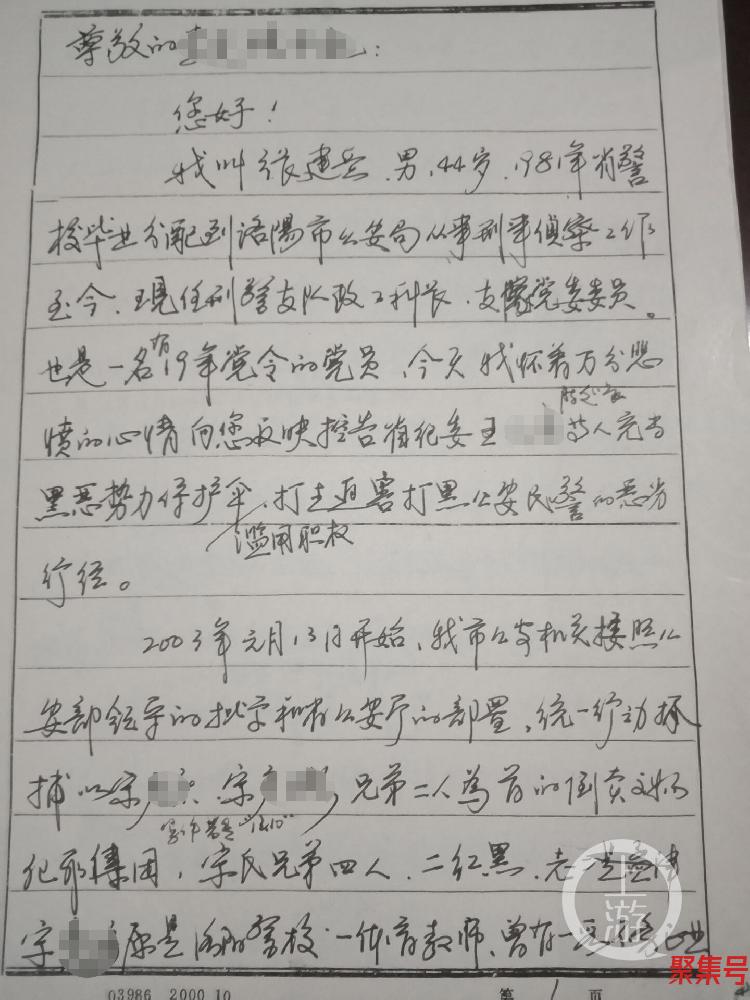 尊敬的
您好！
我叫张建兵，男，44岁，1981年省警
校毕业分配到洛陽市公安局从事刑事侦察工作
至今，现任刑警支队政工科长，支队党委委员。
也是一名有19年党令的党员，今天我怀着万分悲
愤的心情向您反映控告省纪委王 等人充当
黑恶势力保护伞，滥用职权 打击迫害打黑公安民警的恶劣
行径。
2003年元月13日开始，我市公安机关按照公
安部领导的批字和省公安厅的部置，统一行动抓
捕以宋 、宋 兄弟二人為首的倒卖文物
犯罪集团，宋氏兄弟四人，二红黑，老
宋 原是洛阳警校一体育教师，曾有一
03986 2000.10
第 1 页
上游
聚集号